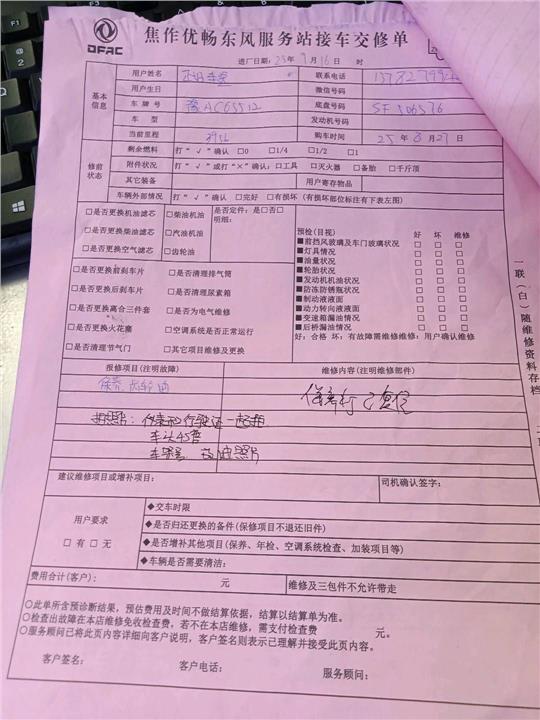 DFAC
焦作优畅东风服务站接车交修单
进厂日期：25年9月16日 时
基本信息
用户姓名
联系电话
用户生日
微信号码
车牌号 豫AC65512
底盘号码 SF506576
车型
发动机号码
当前里程
购车时间 25年8月27日
修前状态
剩余燃料 打“√”确认 □0 □1/4 □1/2 □1
附件状况 打“√”或打“×”确认：□工具 □灭火器 □备胎 □千斤顶
其它装备
用户寄存物品
车辆外部情况 打“√”确认 □完好 □有损坏（有损坏部位标注有下表左图）
□是否更换机油滤芯 □柴油机油 是否定件：是□否□
□是否更换柴油滤芯 □汽油机油 明细：
□是否更换空气滤芯 □齿轮油
□是否更换前刹车片 □是否清理排气筒
□是否更换后刹车片 □是否清理尿素箱
□是否更换离合三件套 □是否为电气维修
□是否更换火花塞 □空调系统是否正常运行
□是否清理节气门 □其它项目维修及更换
预检（目视） 好 坏 维修
■前挡风玻璃及车门玻璃状况 □ □ □
■灯具情况 □ □ □
■油量状况 □ □ □
■轮胎状况 □ □ □
■发动机机油状况 □ □ □
■防冻防锈瓶状况 □ □ □
■制动液液面 □ □ □
■动力转向液液面 □ □ □
■变速箱漏油情况 □ □ □
■后桥漏油情况 □ □ □
好：合格 坏：有故障需维修维修：用户确认维修
报修项目（注明故障）
维修内容（注明维修部件）
保养 齿轮油
保养灯已复位
拍照片：仪表和行驶证一起拍
车头45度
车架号
照片
建议维修项目或增补项目：
司机确认签字：
用户要求
□有 □无
◆交车时限
◆是否归还更换的备件（保修项目不退还旧件）
◆是否增补其他项目（保养、年检、空调系统检查、加装项目等）
◆车辆是否需要清洁：
费用合计（客户）： 元
维修及三包件不允许带走
○此单所含预诊断结果，预估费用及时间不做结算依据，结算以结算单为准。
○检查出故障在本店维修免收检查费，若不在本店维修，需支付检查费 元。
○服务顾问已将此页内容详细向客户说明，客户签名则表示已理解并接受此页内容。
客户签名： 客户电话： 服务顾问：
一联（白）随维修资料存档